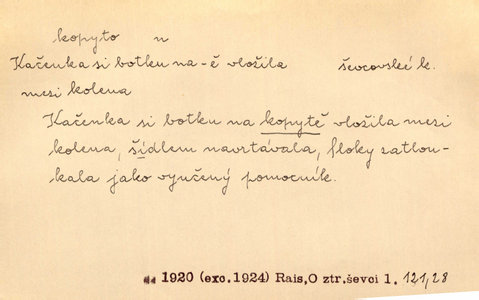 kopyto n
Kačenka si botku na -ě vložila ševcovské k.
mezi kolena
Kačenka si botku na kopytě vložila mezi
kolena, šídlem navrtávala, floky zatlou-
kala jako vyučený pomocník.
1920 (exc.1924) Rais,O ztr.ševci 1. 121,28